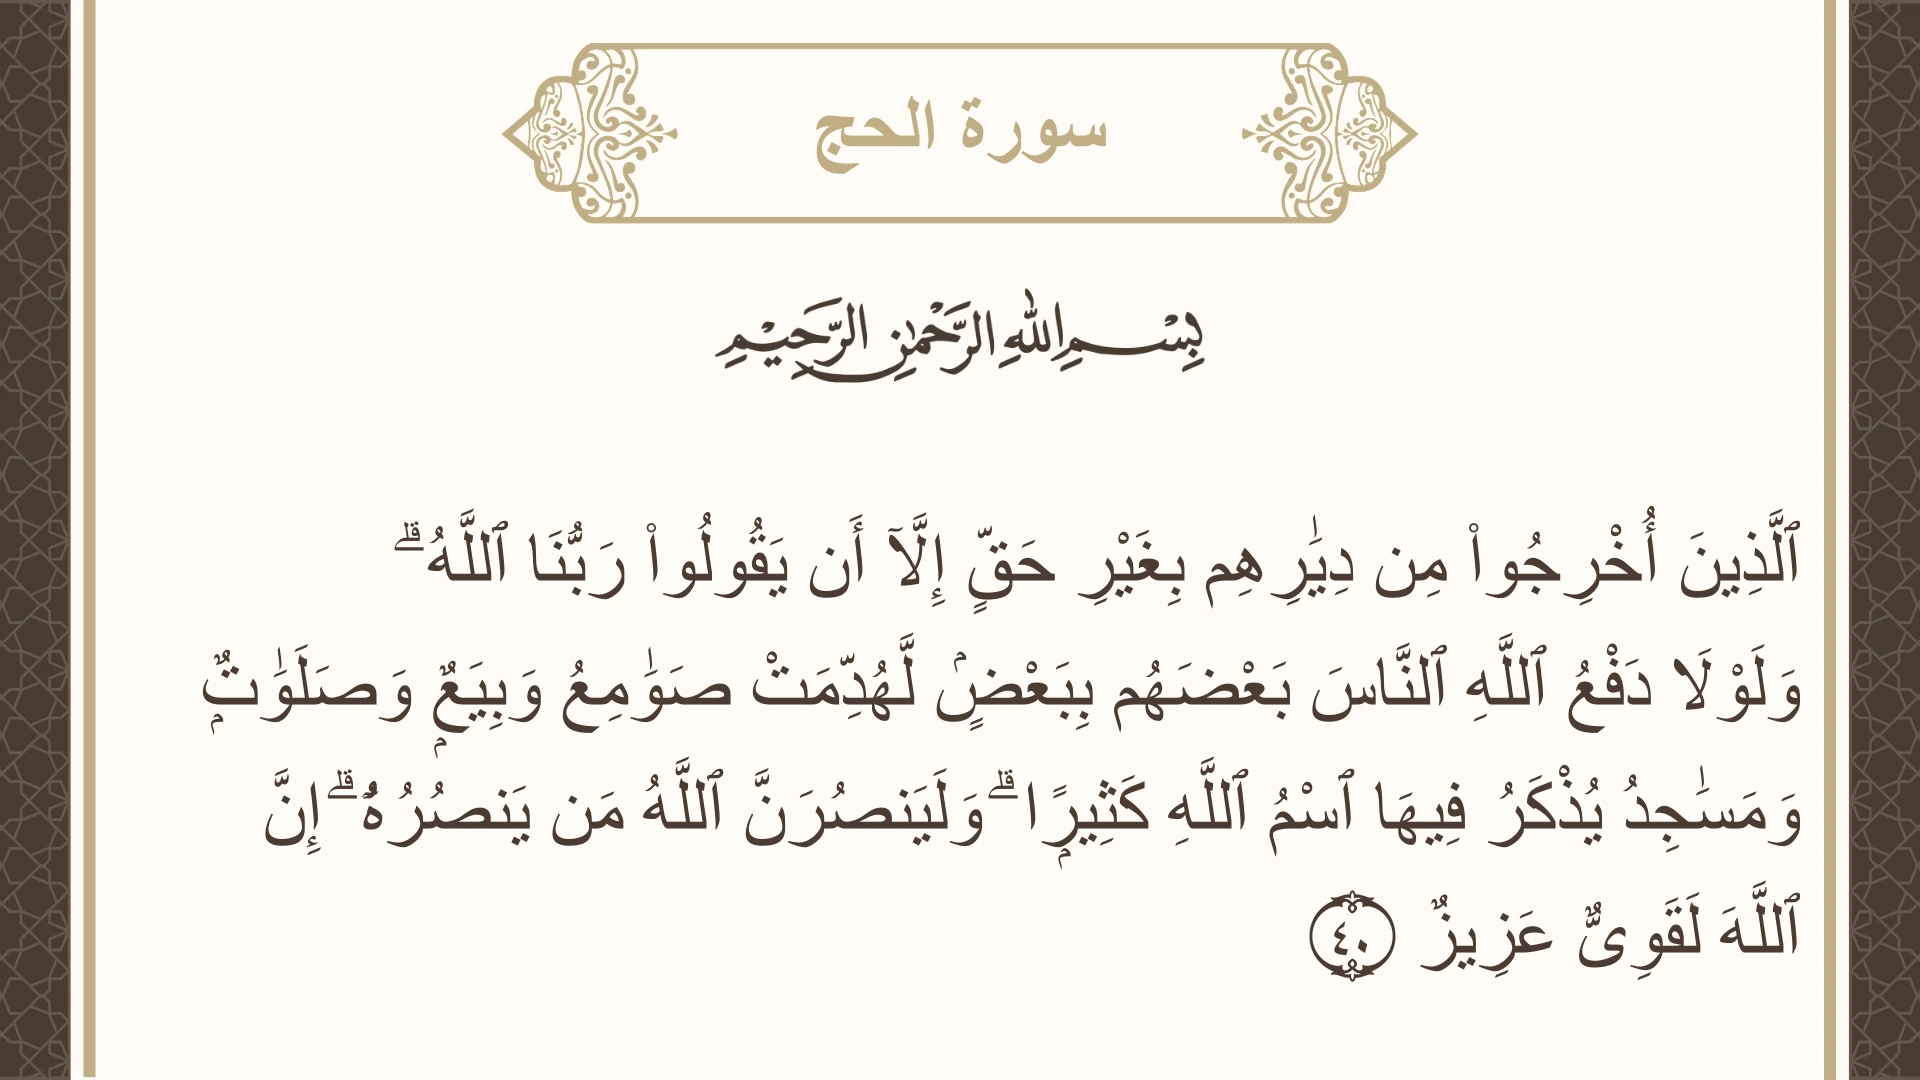 سورة الحج
بِسْمِ اللهِ الرَّحْمٰنِ الرَّحِيْمِ
ٱلَّذِينَ أُخْرِجُوا۟ مِن دِيَٰرِهِم بِغَيْرِ حَقٍّ إِلَّآ أَن يَقُولُوا۟ رَبُّنَا ٱللَّهُ ۗ
وَلَوْلَا دَفْعُ ٱللَّهِ ٱلنَّاسَ بَعْضَهُم بِبَعْضٍۢ لَّهُدِّمَتْ صَوَٰمِعُ وَبِيَعٌۭ وَصَلَوَٰتٌۭ
وَمَسَٰجِدُ يُذْكَرُ فِيهَا ٱسْمُ ٱللَّهِ كَثِيرًۭا ۗ وَلَيَنصُرَنَّ ٱللَّهُ مَن يَنصُرُهُۥٓ ۗ إِنَّ
ٱللَّهَ لَقَوِىٌّ عَزِيزٌ ٤٠